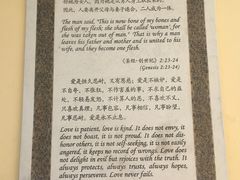 因此，人要离开父母与妻子连合，二人成为一体。
The man said, "This is now bone of my bones and
flesh of my flesh; she shall be called 'woman', for
she was taken out of man." That is why a man
leaves his father and mother and is united to his
wife, and they become one flesh.
(圣经·创世纪) 2:23-24
(Genesis 2:23-24)
爱是恒久忍耐，又有恩慈；爱是不嫉妒，爱是
不自夸，不张狂，不作害羞的事，不求自己的益
处，不轻易发怒，不计算人的恶，不喜欢不义，
只喜欢真理；凡事包容，凡事相信，凡事盼望，
凡事忍耐。爱是永不止息。
Love is patient, love is kind. It does not envy, it
does not boast, it is not proud. It does not dis-
honor others, it is not self-seeking, it is not easily
angered, it keeps no record of wrongs. Love does
not delight in evil but rejoices with the truth. It
always protects, always trusts, always hopes,
always perseveres. Love never fails.